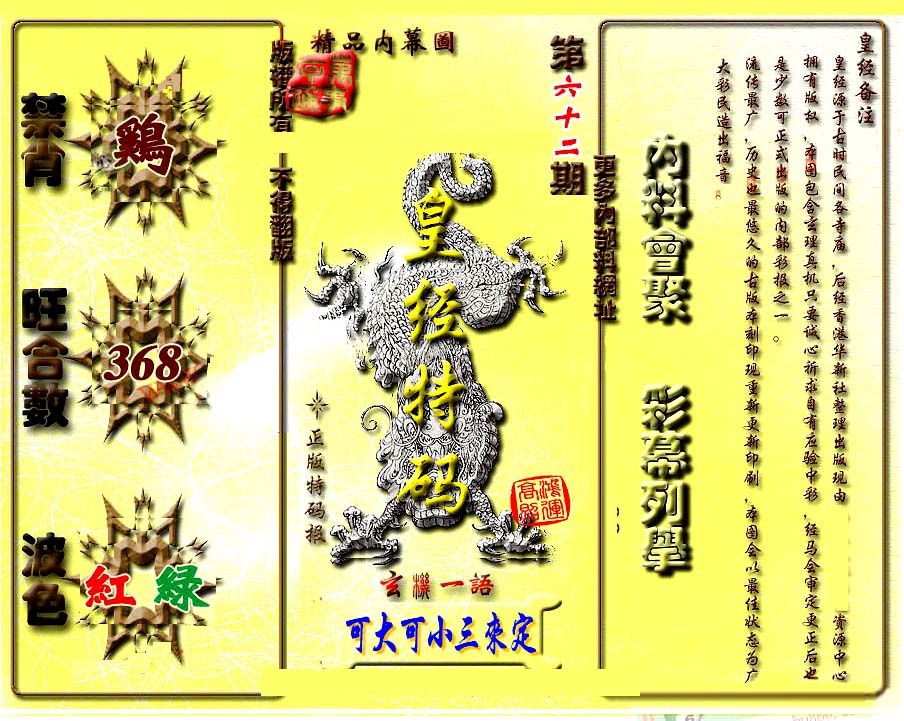 精品内幕圖
版權所有
不得翻版
第六十二期
更多內部料網址
禁肖
鷄
旺合數
368
波色
紅 綠
皇经特码
正版特码报
鴻運高照
玄機一語
可大可小三來定
内料會聚
彩幕列學
皇经备注
皇经源于古时民间各寺庙,后经香港华新社整理出版现由 资源中心
拥有版权,本图包含玄理真机只要诚心祈求自有应验中彩,经马会审定更正后也
是少数可正式出版的内部彩报之一。
流传最广,历史也最悠久的古版本刻印现重新更新印刷,本图会以最佳状态为广
大彩民造出福音